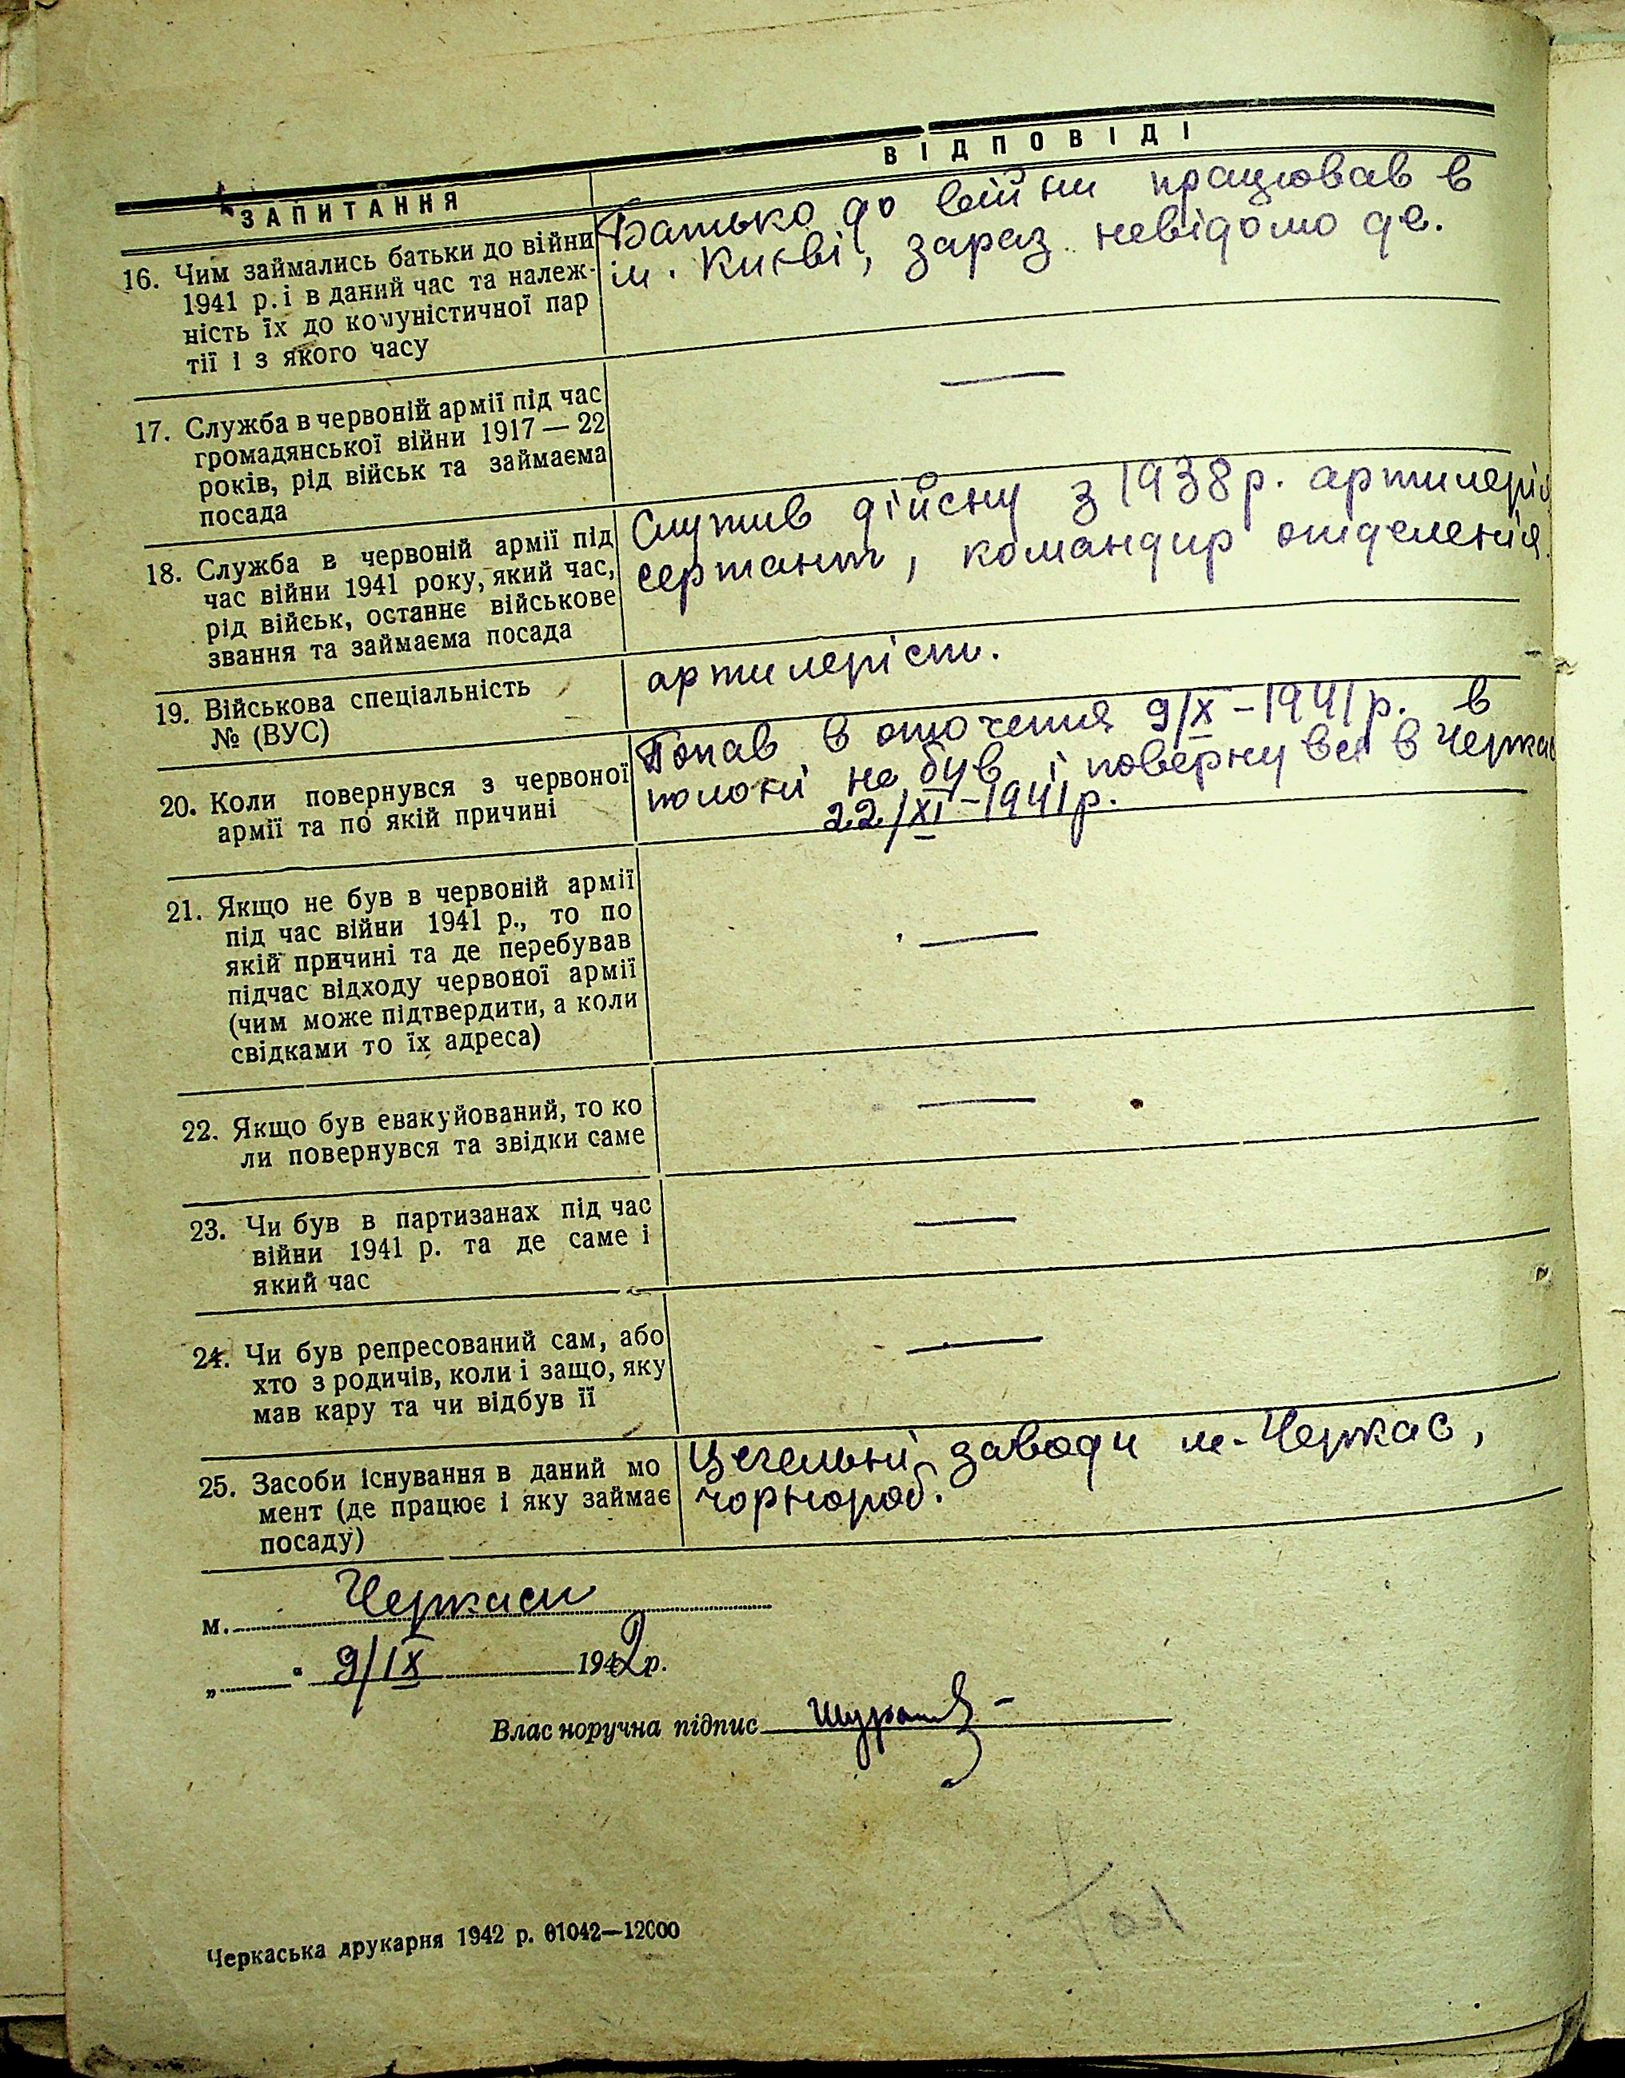 ЗАПИТАННЯ
ВІДПОВІДІ
16. Чим займались батьки до війни
1941 р. і в даний час та належ-
ність їх до комуністичної пар
тії і з якого часу
Батько до війни працював в
м. Києві, зараз невідомо де.
17. Служба в червоній армії під час
громадянської війни 1917 — 22
років, рід військ та займаєма
посада
—
18. Служба в червоній армії під
час війни 1941 року, який час,
рід військ, останнє військове
звання та займаєма посада
Служив дійсну з 1938 р. артилерія
сержант, командир отделенія.
19. Військова спеціальність
№ (ВУС)
артилеріст.
20. Коли повернувся з червоної
армії та по якій причині
Попав в оточення 9/X – 1941 р. в
полоні не був і повернувся в Черкас
22/XI – 1941 р.
21. Якщо не був в червоній армії
під час війни 1941 р., то по
якій причині та де перебував
підчас відходу червоної армії
(чим може підтвердити, а коли
свідками то їх адреса)
—
22. Якщо був евакуйований, то ко
ли повернувся та звідки саме
—
23. Чи був в партизанах під час
війни 1941 р. та де саме і
який час
—
24. Чи був репресований сам, або
хто з родичів, коли і защо, яку
мав кару та чи відбув її
—
25. Засоби існування в даний мо
мент (де працює і яку займає
посаду)
Цегельні заводи м. Черкас,
чорнороб.
м. Черкаси
„ " 9/IX 1942 р.
Власноручна підпис
Черкаська друкарня 1942 р. 01042—12000